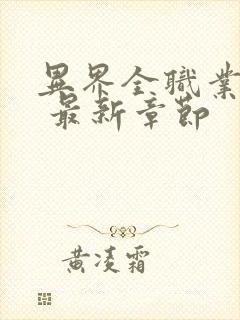 異界全職業
最新章節
黃凌霜